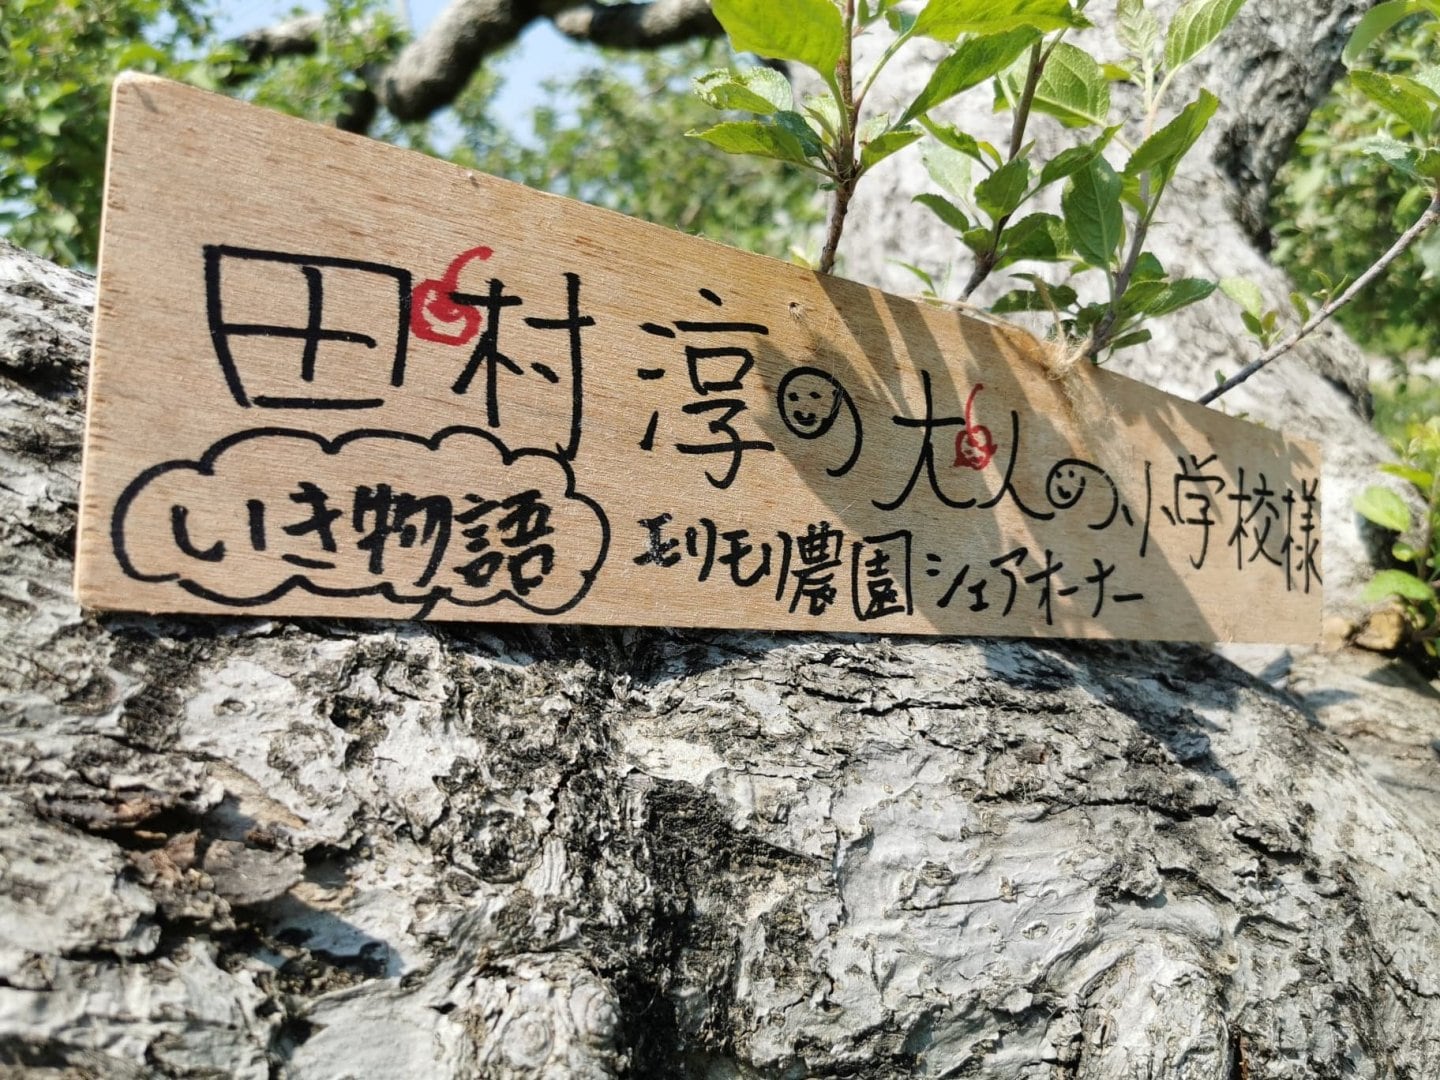 田村淳の大人の小学校様
いき物語
エリモリ農園シェアオーナー